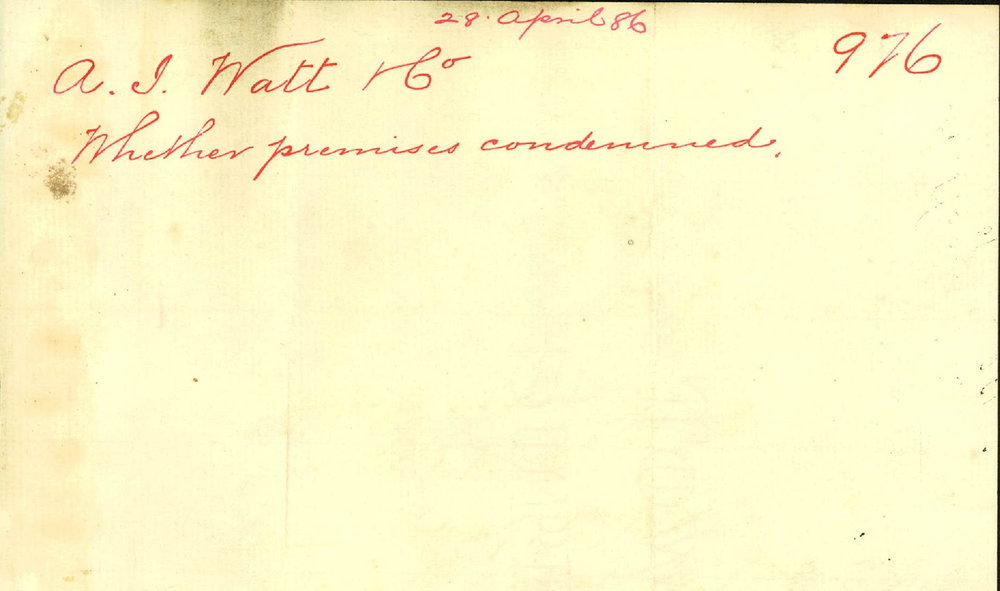 28. April 86
976
A. J. Watt & Co
Whether premises condemned.